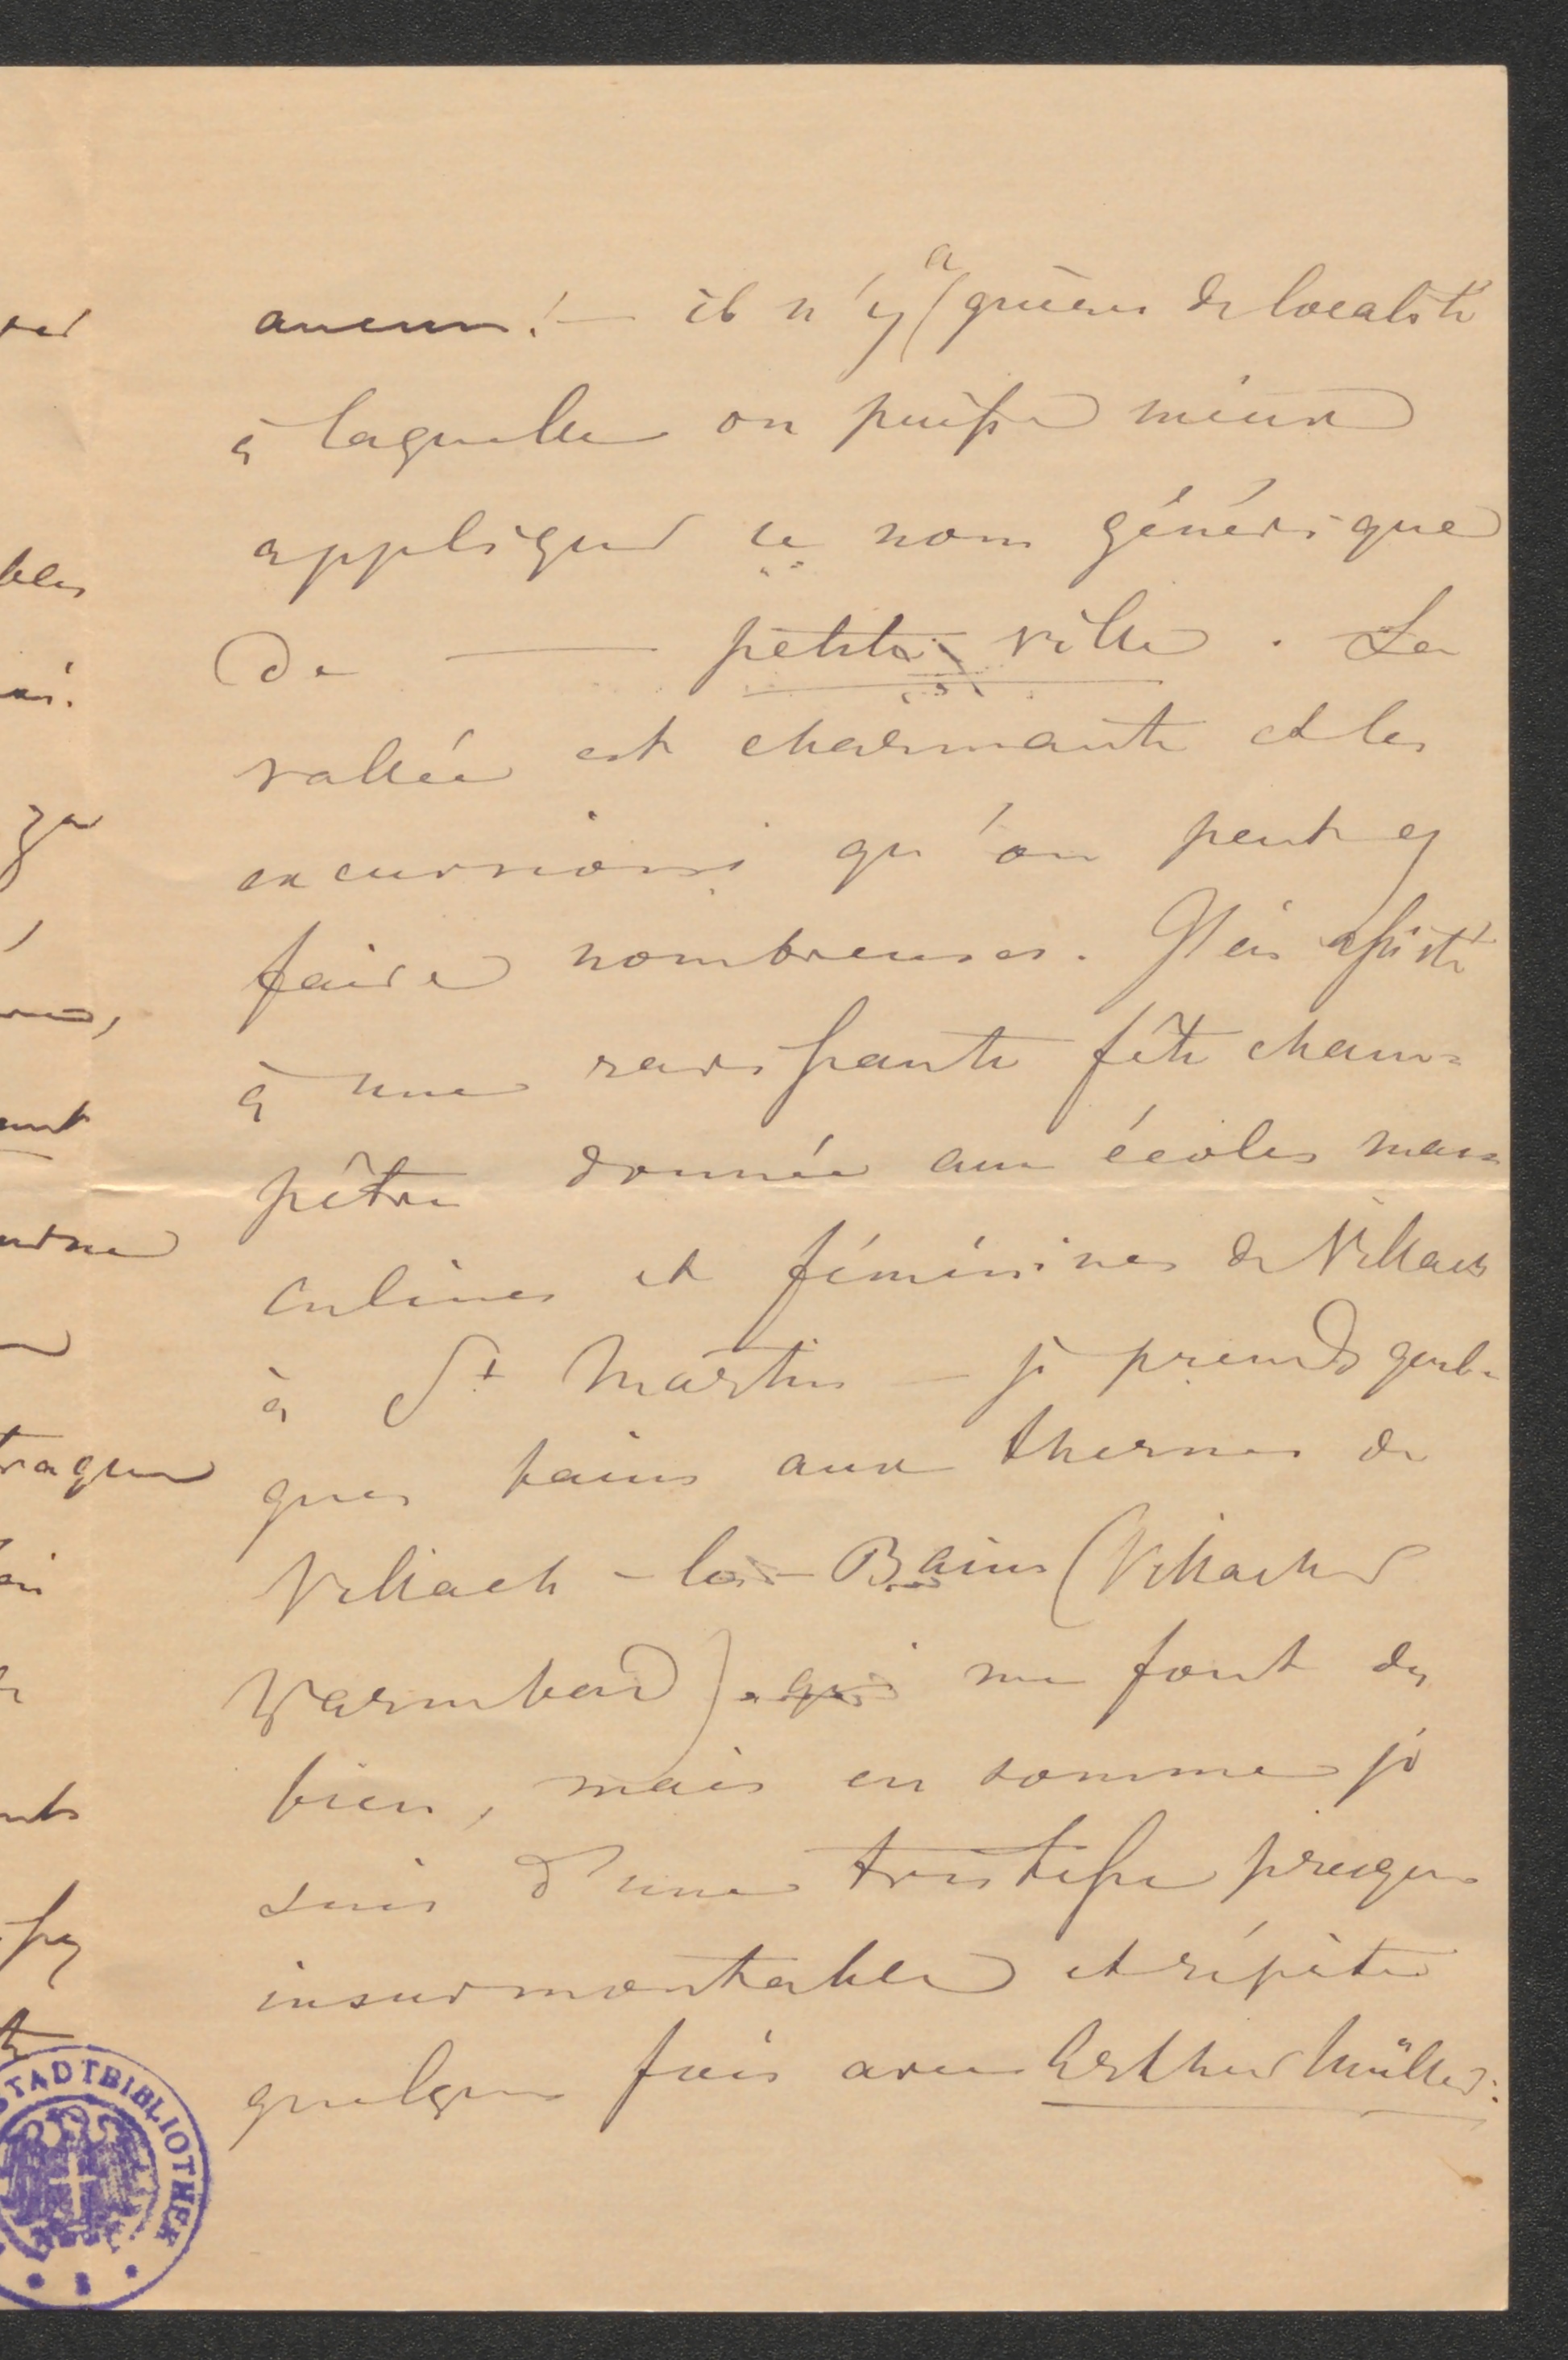 aucun! — il n'y a guères de localité
à laquelle on puisse mieux
appliquer ce nom générique
de — petite ville. La
vallée est charmante et les
excursions qu'on peut y
faire nombreuses. J'ai assisté
à une ravissante fête cham=
pêtre donnée aux écoles mas=
culines et féminines de Villach
à St Martin — je prends quel=
ques bains aux thermes de
Villach-les-Bains (Villacher
Warmbad) qui me font du
bien, mais en somme je
suis d'une tristesse presque
insurmontable et répète
quelques fois avec Arthur Müller:
STADTBIBLIOTHEK